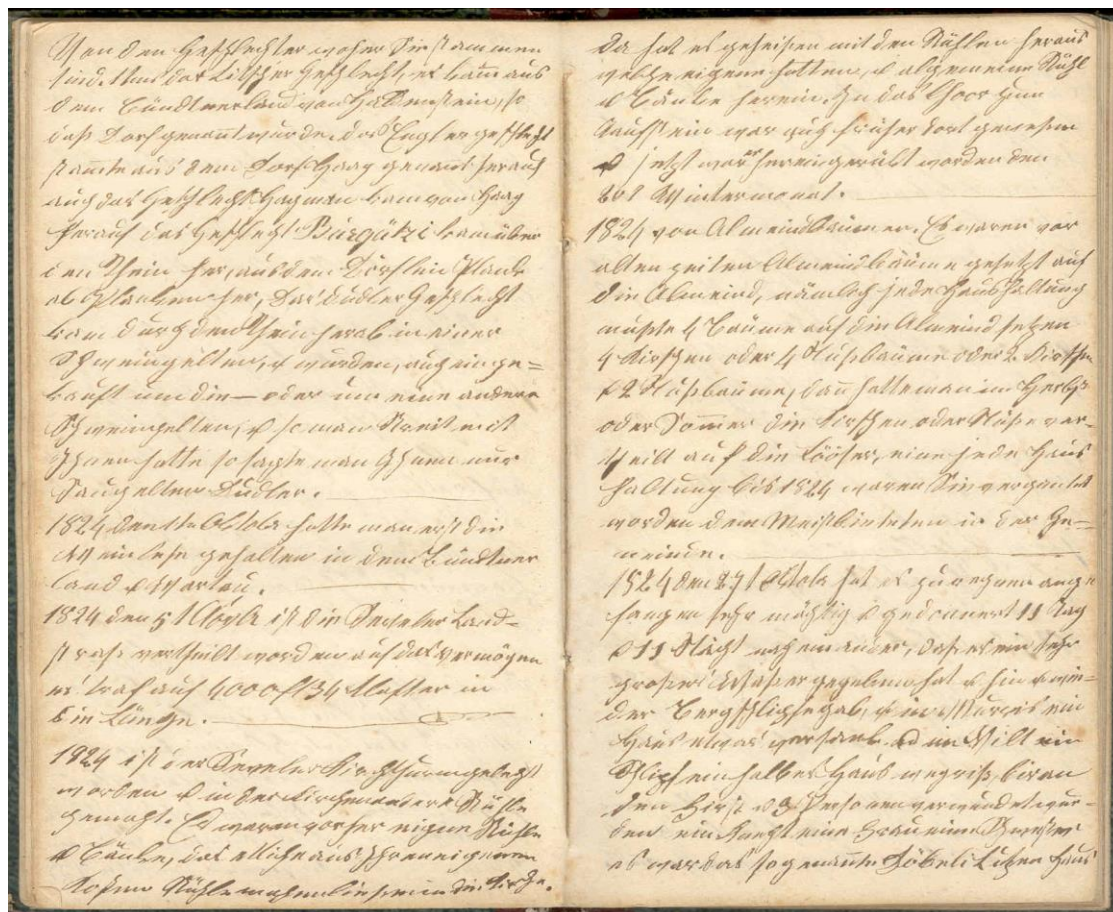 Von den Geschlechter woher Sie stammen
sind. Nun das Litscher Geschlecht, es kam aus
dem Bündtnerland von Haldenstein, so
daß Dorf genannt wurde. das Engler geschlecht
stamte aus dem Dorf Haag genant herauf
auch das Geschlecht Hagman kam von Haag
herauf das Geschlecht Büsgätzi kam über
den Rhein her, aus dem Dörflein Plank
als Planken her, Das Dudler Geschlecht
kam durch den Rhein herab in einer
Schweingelten, & wurden, auch einge=
kauft um die – oder um eine andere
Schweingelten, & so man Streit mit
Ihnen hatte so sagte man Ihnen nur
Saugelten Dudler.
1824 den Oktob hatte man erst die
Weinlese gehalten in dem Bündtner
land & Wartau.
1824 den 5t ist die Seveler Land=
straß vertheilt worden auf das vermögen
es traf auf 4000 f 34 Klafter in
die Länge.
1824 ist der Seveler Kirchthurm
worden & in der Kirchen andere Stühle
gemacht. Es waren vorher eigne Stühle
& Bänke, das etliche aus Ihren eigenen
Kosten Stühle machen ließen in die Kirche.
da hat es geheißen mit den Stühlen heraus
welche eigene hatten, & algemeine Stühl
& Bänke herein. In das Chor zum
Taufstein war auch früher dort gewesen
& jetzt war er herein worden den
Wintermonat.
1824 von Almeindbäumer. Es waren vor
alten zeiten Almeindbäume gesetzt auf
die Almeind, nämlich jede Haushaltung
mußte 4 Bäume auf die Almeind setzen
4 Kirschen oder 4 Nußbäume oder 2 Kirschen
& 2 Nußbäume, dan hatte man im Herbst
oder Sommer die Kirschen oder Nüße ver=
theilt auf die Lööser, eine jede Haus
haltung bis 1824 waren Sie vergantet
worden dem Meistbietenten in der Ge=
meinde.
1824 den 27t Oktob hat es zu regnen ange
fangen sehr mächtig & gedonnert 11 Tag
& 11 Nacht nach einander, daß es ein sehr
großes Waßer gegeben hat & hin & wie=
der Bergschlipfe gab, & in Murris ein
Haus etwas & im Wilt ein
Schlipf ein halbes Haus wegriß,
den Hirst & 3 Personen verwundet wur=
den ein Knecht eine Frau eine Schwester
es war das sogenannte Töbeli Lutzen Haus